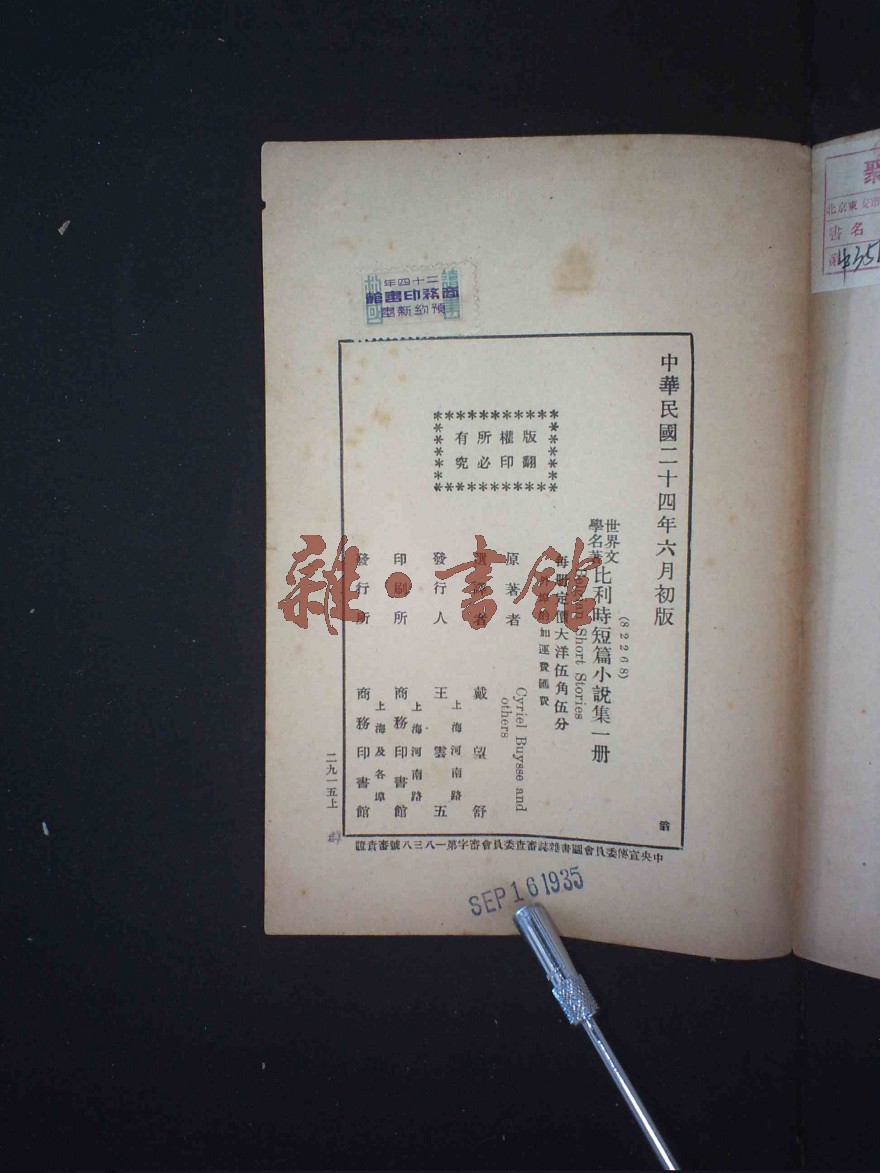 中華民國二十四年六月初版
(82268)
世界文學名著
比利時短篇小說集一册
Belgian Short Stories
每册定價大洋伍角伍分
外埠酌加運費匯費
版權所有
翻印必究
原著者
Cyriel Buysse and others
選譯者
戴望舒
發行人
王雲五
上海河南路
印刷所
商務印書館
上海河南路
發行所
商務印書館
上海及各埠
二九一五上
中央宣傳委員會圖書雜誌審查委員會審字第一八三八號審查證
SEP 16 1935
二十四年
商務印書館
預約新書
雜·書館
北京東安市
書名